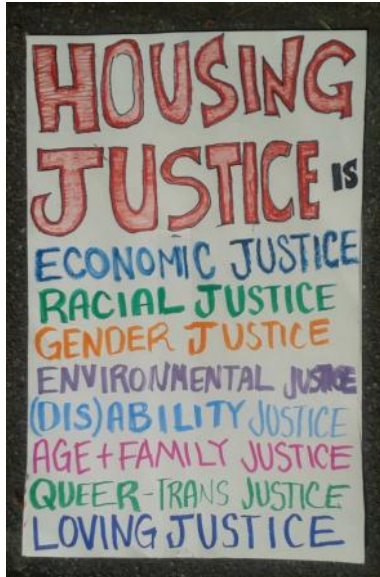 HOUSING
JUSTICE IS
ECONOMIC JUSTICE
RACIAL JUSTICE
GENDER JUSTICE
ENVIRONMENTAL JUSTICE
(DIS)ABILITY JUSTICE
AGE + FAMILY JUSTICE
QUEER-TRANS JUSTICE
LOVING JUSTICE